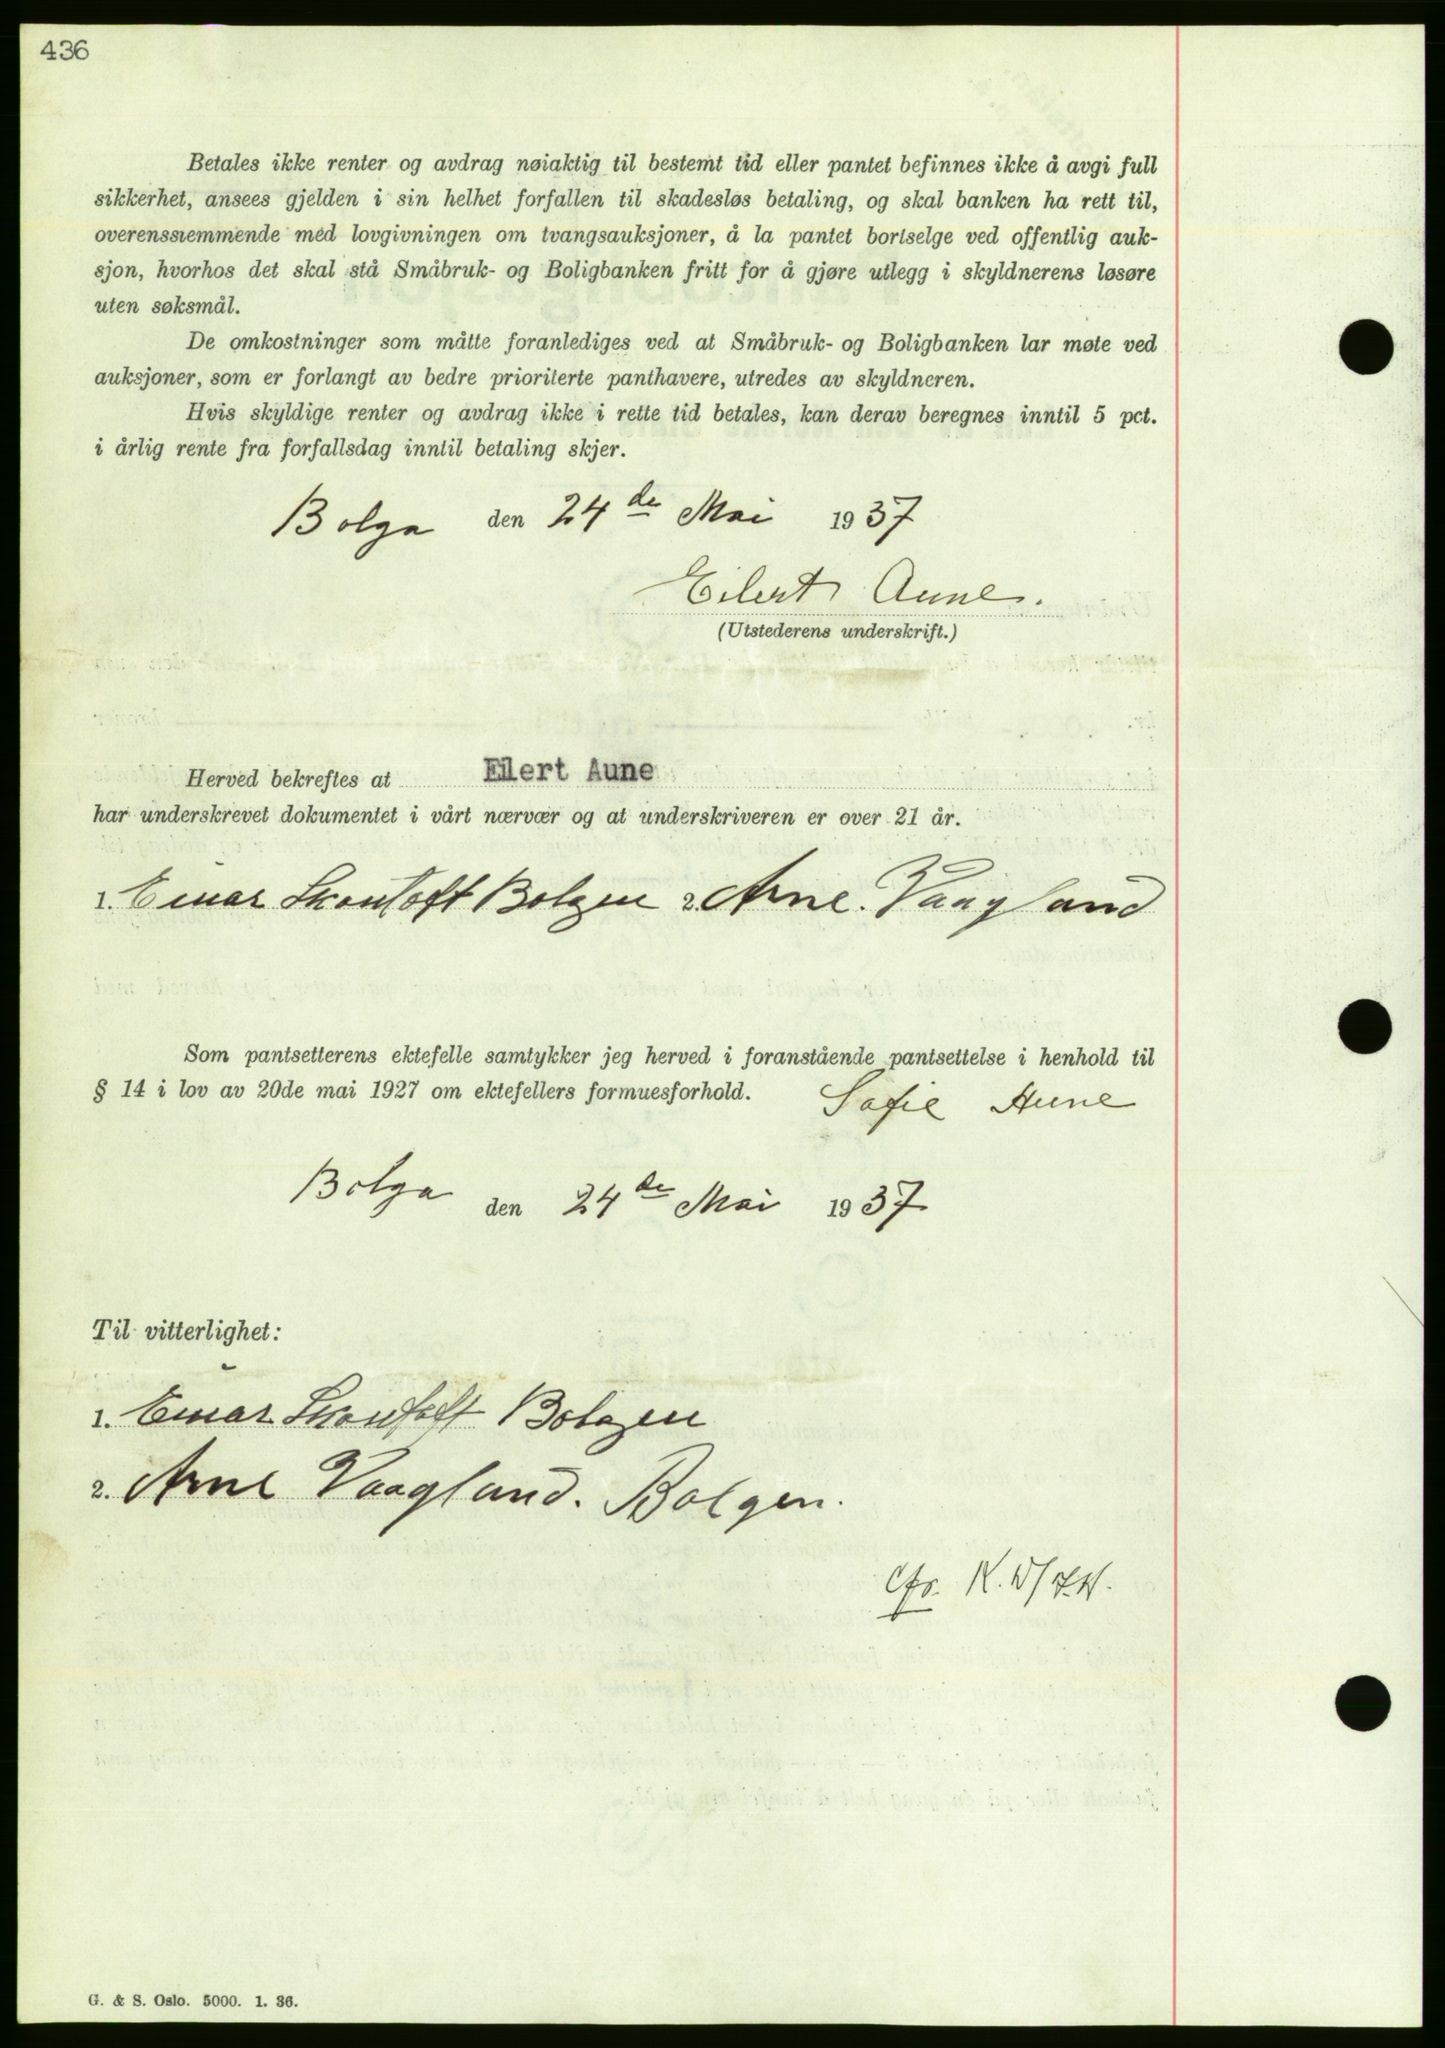 436
Betales ikke renter og avdrag nøiaktig til bestemt tid eller pantet befinnes ikke å avgi full
sikkerhet, ansees gjelden i sin helhet forfallen til skadesløs betaling, og skal banken ha rett til,
overensstemmende med lovgivningen om tvangsauksjoner, å la pantet bortselge ved offentlig auk-
sjon, hvorhos det skal stå Småbruk- og Boligbanken fritt for å gjøre utlegg i skyldnerens løsøre
uten søksmål.
De omkostninger som måtte foranlediges ved at Småbruk- og Boligbanken lar møte ved
auksjoner, som er forlangt av bedre prioriterte panthavere, utredes av skyldneren.
Hvis skyldige renter og avdrag ikke i rette tid betales, kan derav beregnes inntil 5 pct.
i årlig rente fra forfallsdag inntil betaling skjer.
Bolga den 24 de Mai 1937
Eilert Aune.
(Utstederens underskrift.)
Herved bekreftes at Eilert Aune
har underskrevet dokumentet i vårt nærvær og at underskriveren er over 21 år.
1. Einar Skontoft Bolgen 2. Arne. Vaagland
Som pantsetterens ektefelle samtykker jeg herved i foranstående pantsettelse i henhold til
§ 14 i lov av 20de mai 1927 om ektefellers formuesforhold. Sofie Aune
Bolga den 24 de Mai 1937
Til vitterlighet:
1. Einar Skontoft Bolgen
2. Arne Vaagland. Bolgen.
Cfr.
G. & S. Oslo. 5000. 1. 36.